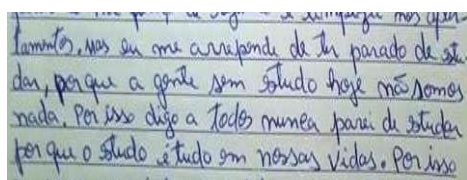 de e limpeza nos apar
tamentos, mas eu me arrependo de ter parado de stu
dar, porque a gente sem studo hoje não somos
nada. Por isso digo a todos nunca parei de studar
por que o studo é tudo em nossas vidas. Por isso